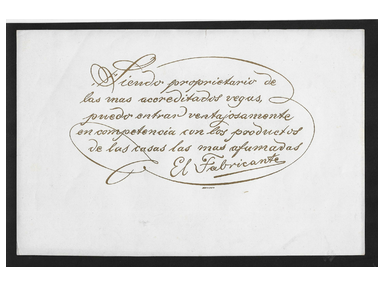 Siendo proprietario de
las mas acreditados vegas,
puedo entrar ventajosamente
en competencia con los productos
de las casas las mas afumadas
El Fabricante